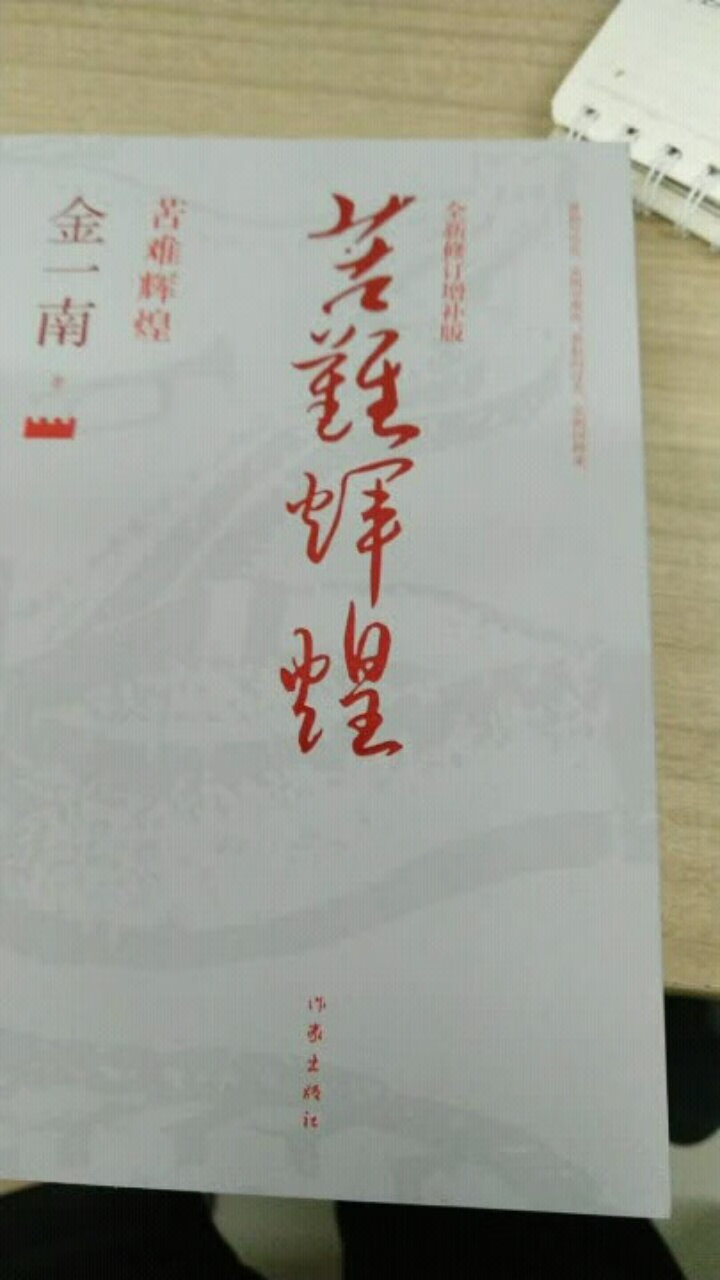 全新修订增补版
苦難輝煌
苦难辉煌
金一南
著
作家出版社